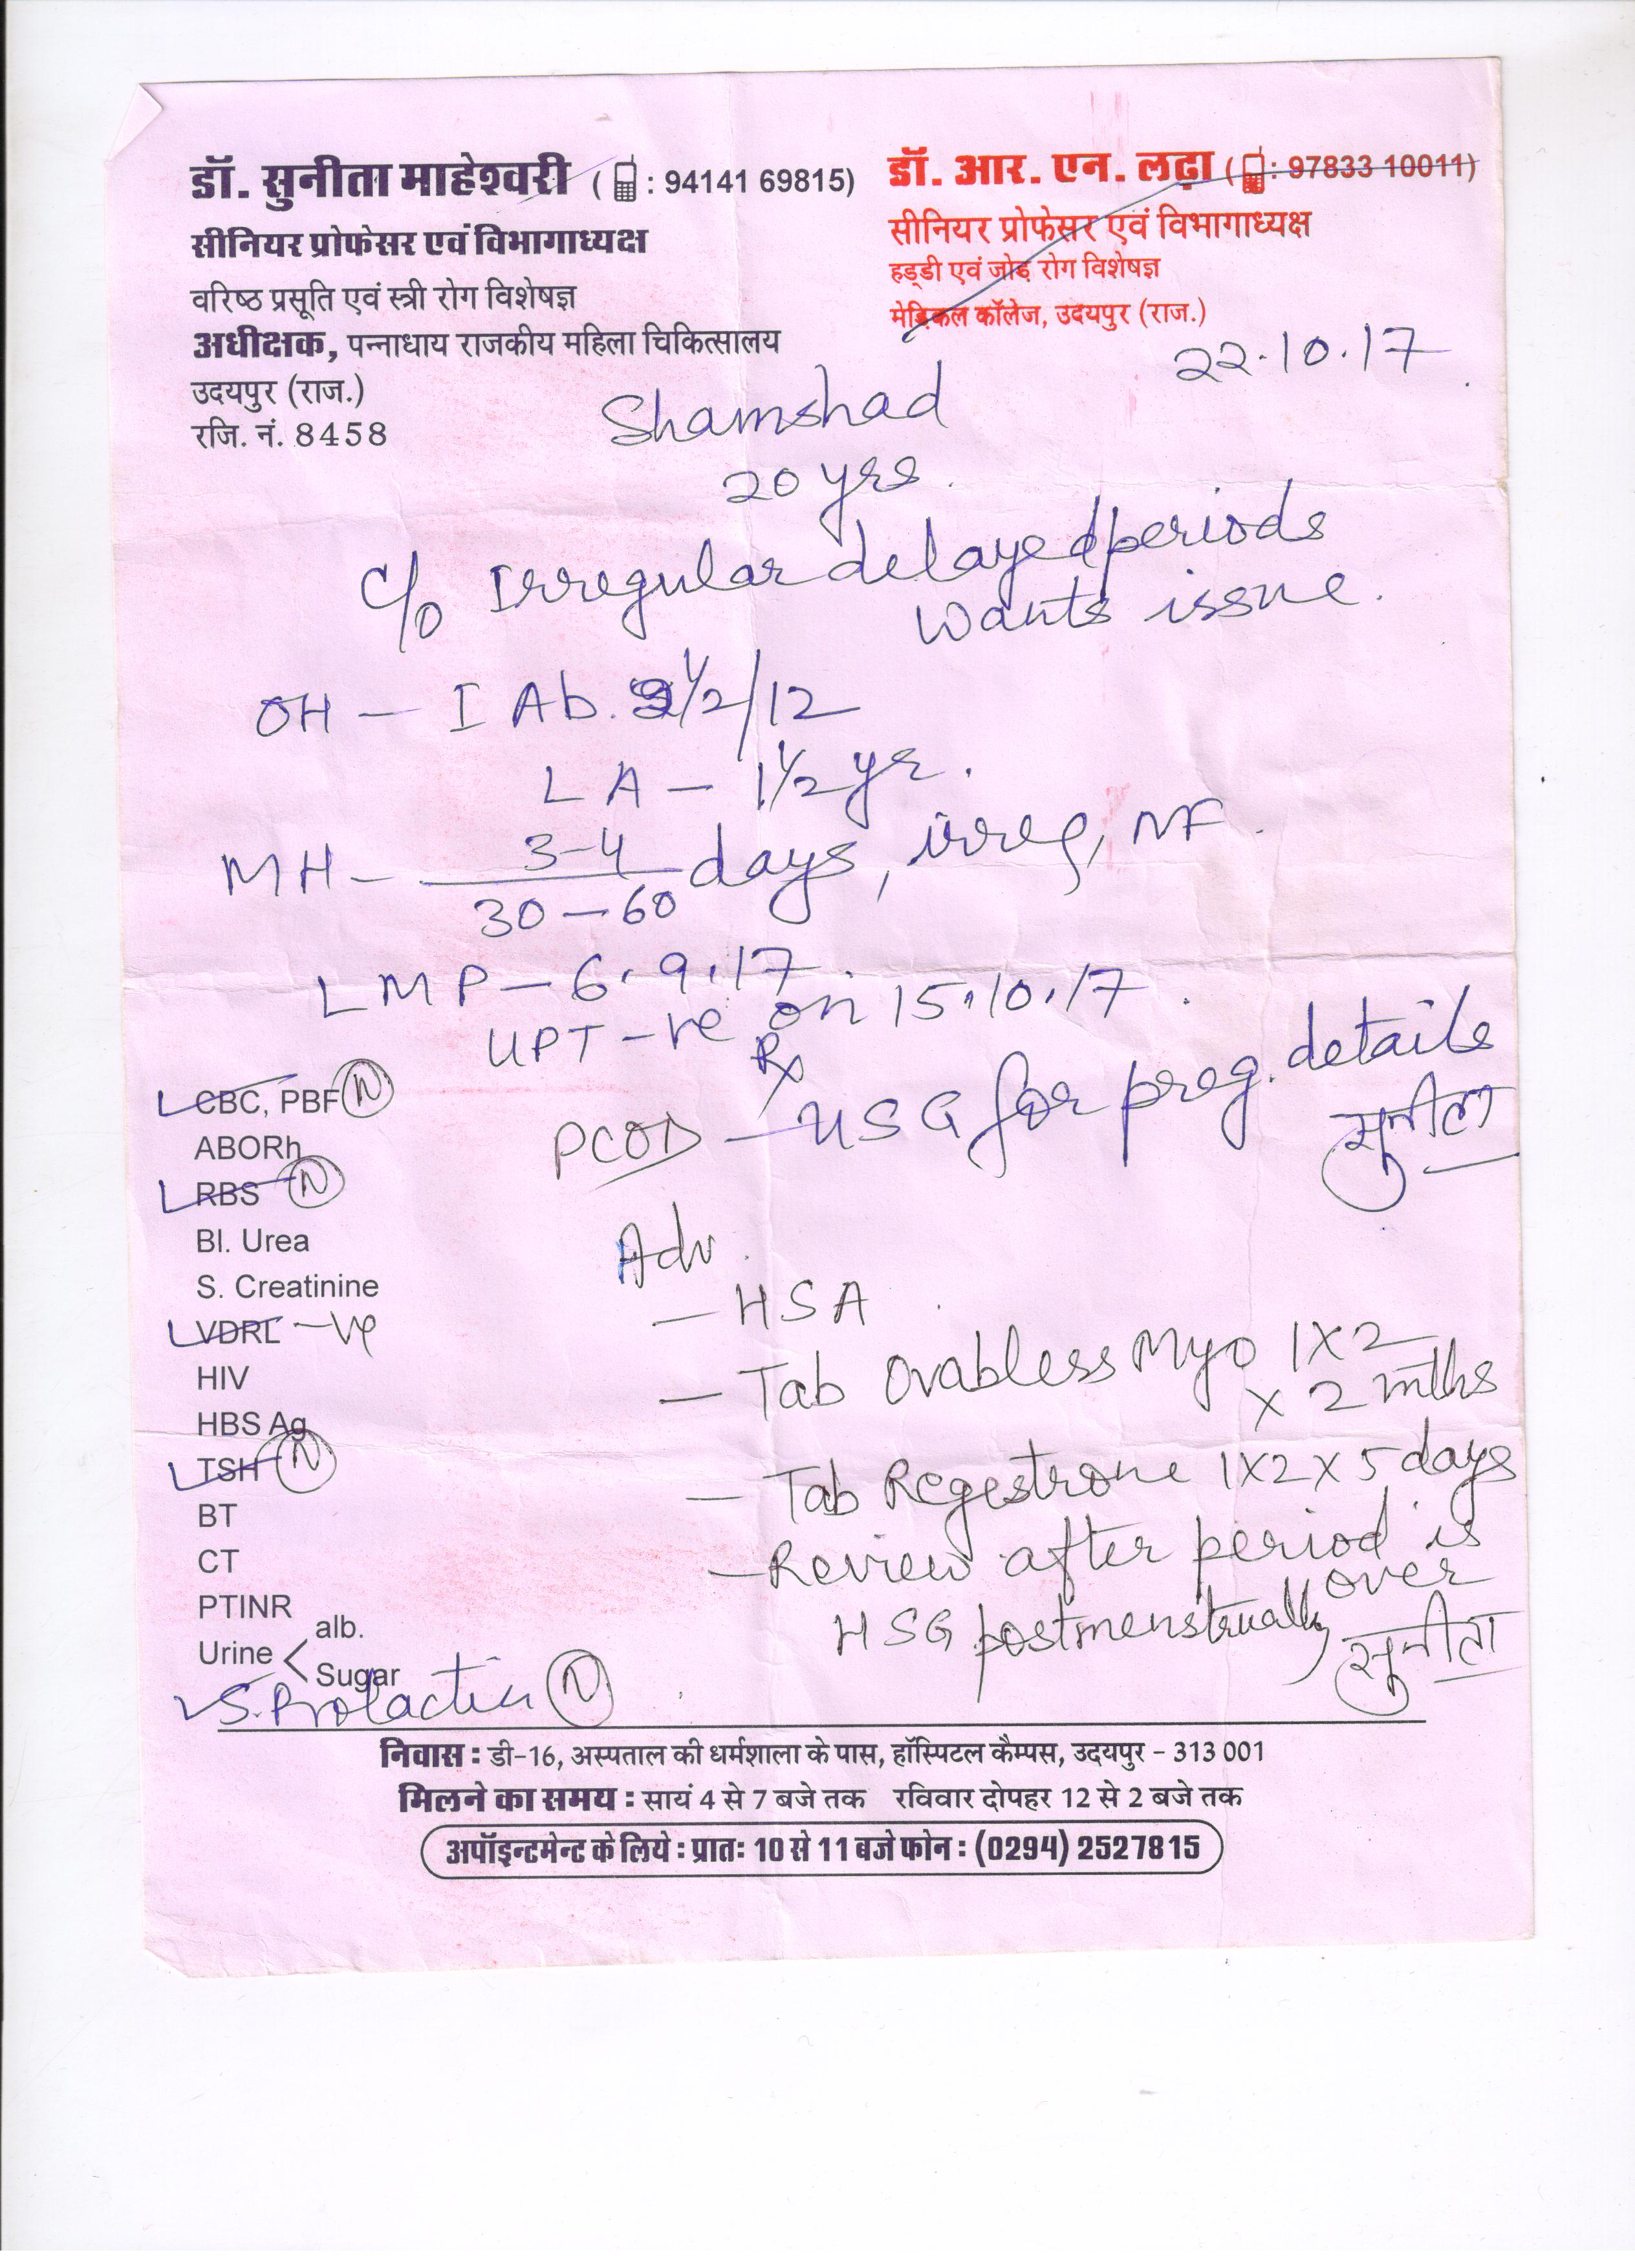 डॉ. सुनीता माहेश्वरी ( : 94141 69815)
सीनियर प्रोफेसर एवं विभागाध्यक्ष
वरिष्ठ प्रसूति एवं स्त्री रोग विशेषज्ञ
अधीक्षक, पन्नाधाय राजकीय महिला चिकित्सालय
उदयपुर (राज.)
रजि. नं. 8458
डॉ. आर. एन. लढ़ा ( : 97833 10011)
सीनियर प्रोफेसर एवं विभागाध्यक्ष
हड्डी एवं जोड़ रोग विशेषज्ञ
मेडिकल कॉलेज, उदयपुर (राज.)
22.10.17
Shamshad
20 yrs.
c/o Irregular delayed periods
Wants issue.
OH - I Ab. 1/2/12
LA - 1 1/2 yr.
MH - 3-4/30-60 days, irreg, NF.
LMP - 6.9.17.
UPT -ve on 15.10.17.
Rx
PCOD - USG for preg. details
सुनीता
CBC, PBF N
ABORh
RBS N
Bl. Urea
S. Creatinine
VDRL -ve
HIV
HBS Ag
TSH N
BT
CT
PTINR
Urine < alb.
Sugar
S. Prolactin N
Adv.
- HSA
- Tab Ovabless Myo 1x2
x 2 mths
- Tab Regestrone 1x2x5 days
- Review after period is
over
HSG postmenstrually
सुनीता
निवास : डी-16, अस्पताल की धर्मशाला के पास, हॉस्पिटल कैम्पस, उदयपुर - 313 001
मिलने का समय : सायं 4 से 7 बजे तक रविवार दोपहर 12 से 2 बजे तक
अपॉइन्टमेन्ट के लिये : प्रातः 10 से 11 बजे फोन : (0294) 2527815